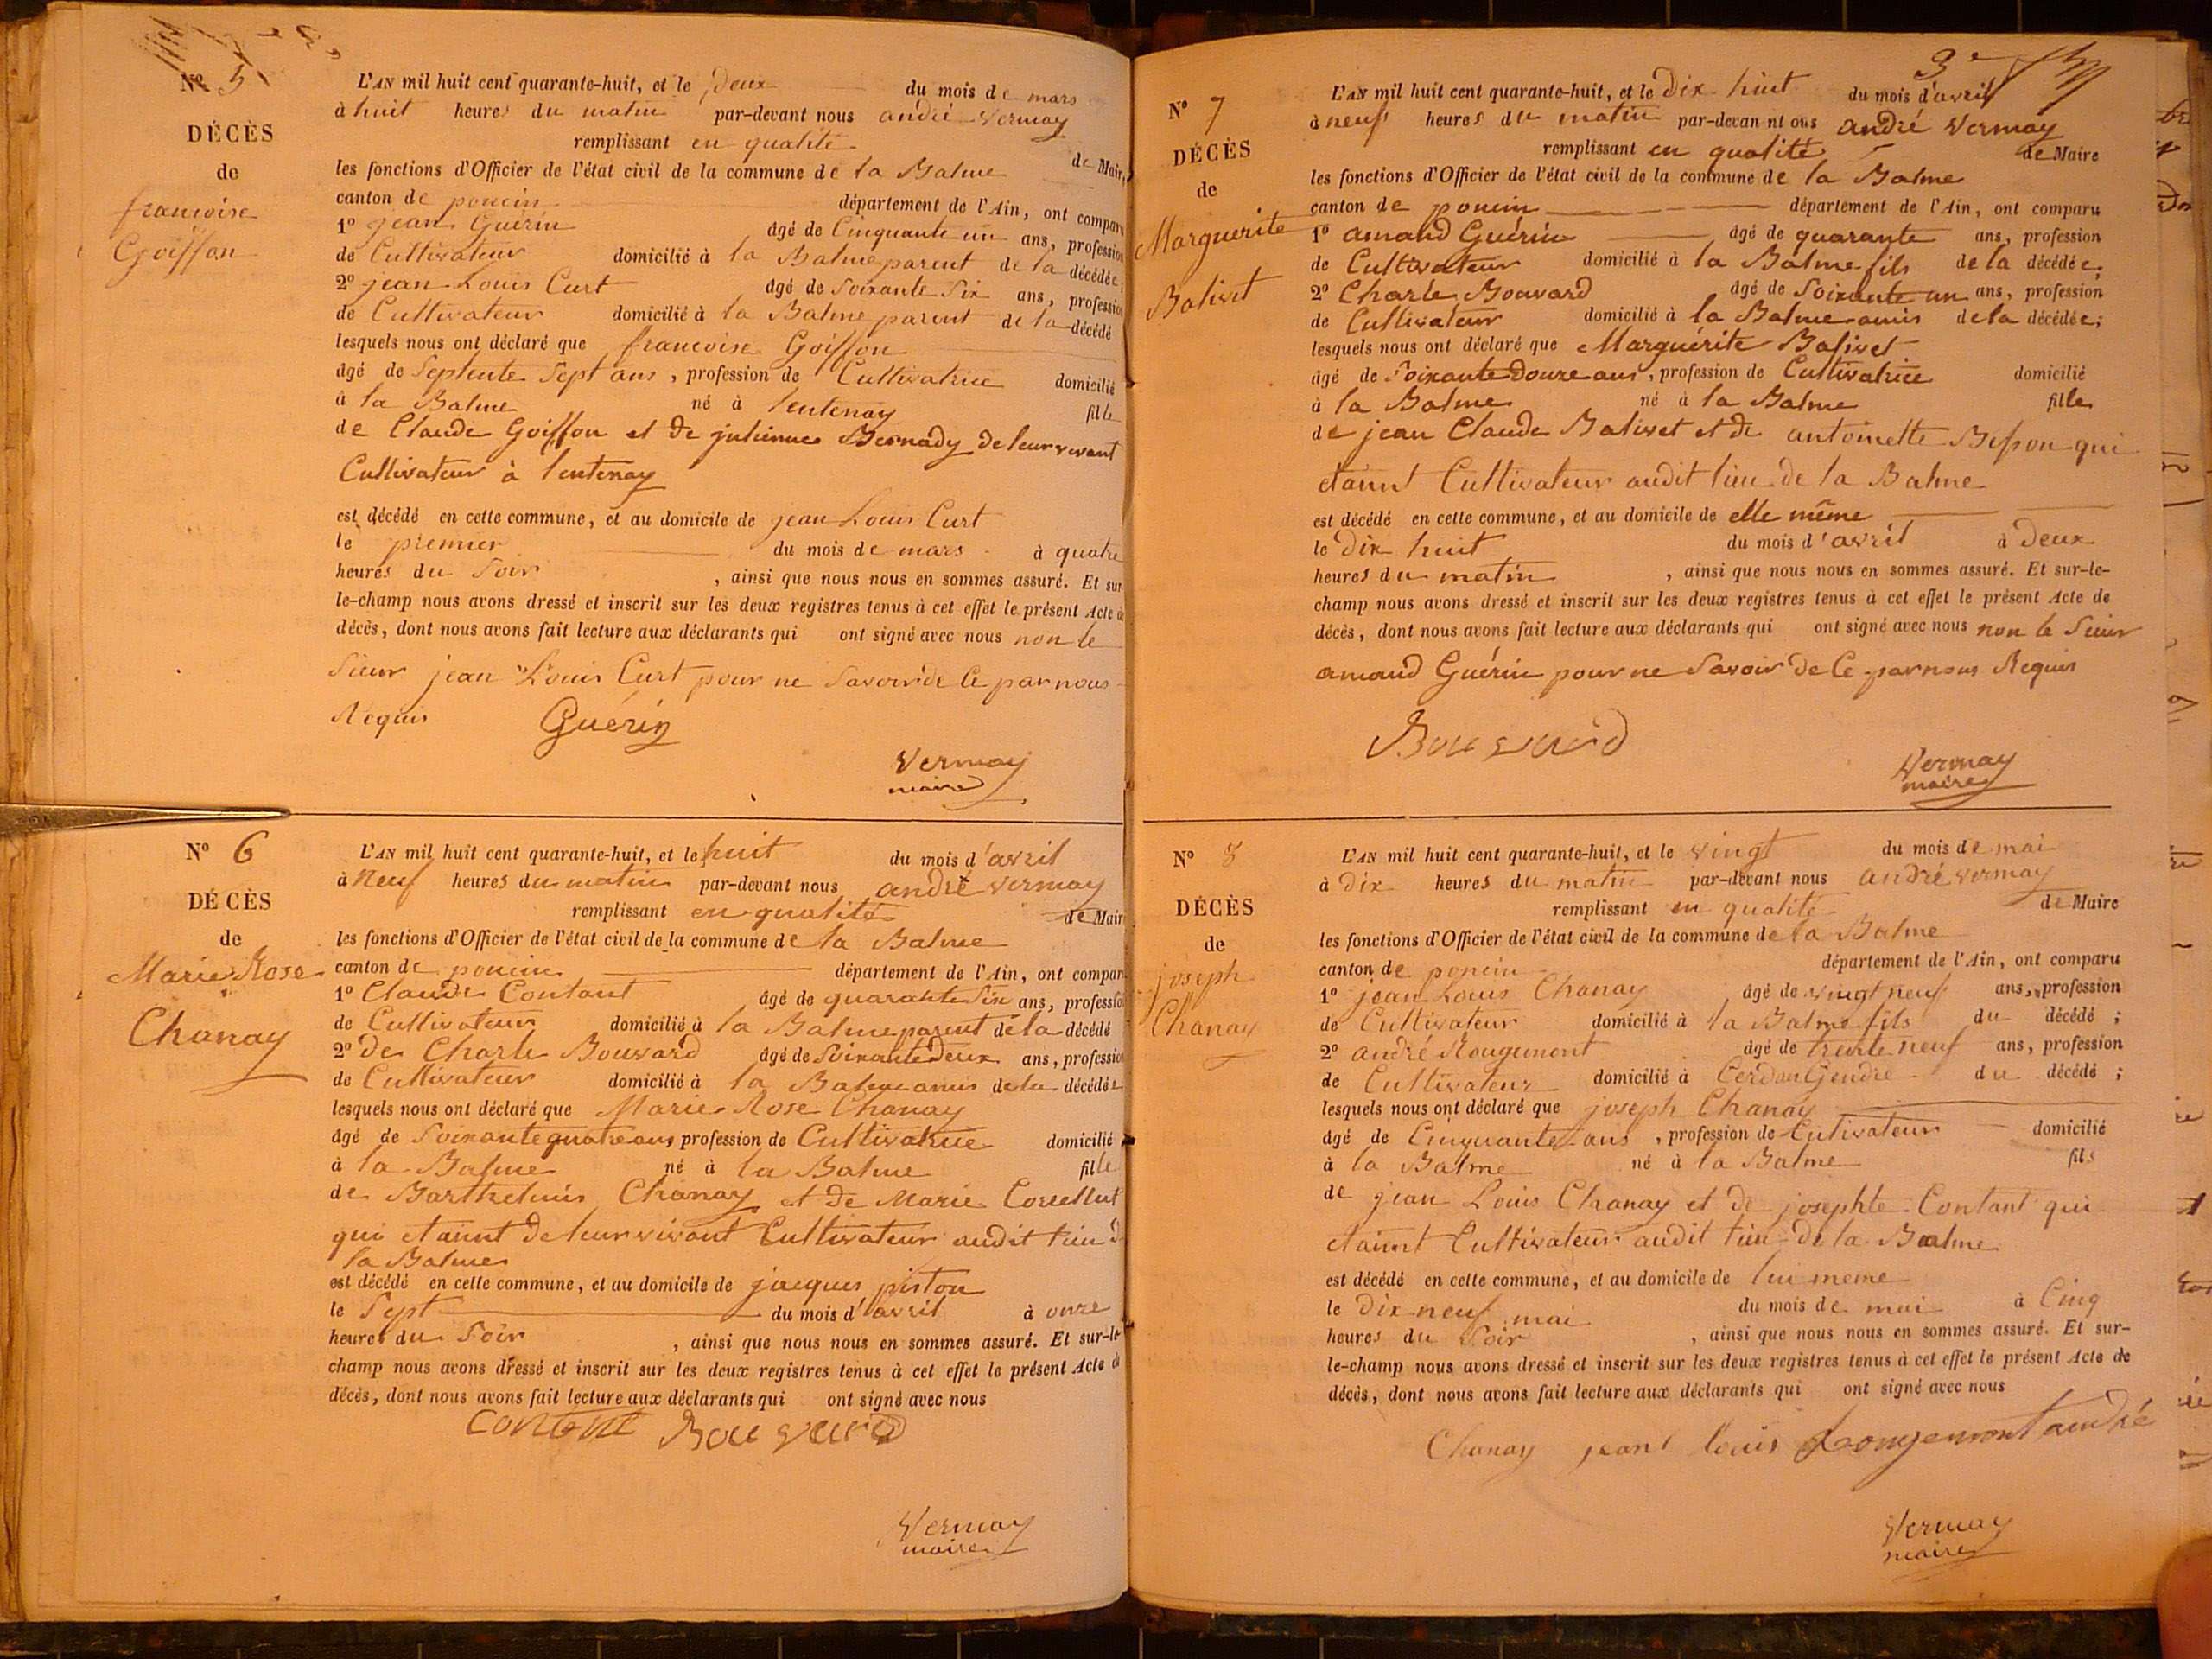 N° 5
DÉCÈS
de
francoise
Goiffon
L'AN mil huit cent quarante-huit, et le Deux du mois de mars
à huit heures du matin par-devant nous andré Vermay
remplissant en qualité de Maire
les fonctions d'Officier de l'état civil de la commune de la Balme
canton de poncin département de l'Ain, ont comparu
1° jean Guérin âgé de Cinquante un ans, profession
de Cultivateur domicilié à la Balme parent de la décédée;
2° jean Louis Curt âgé de Soixante Six ans, profession
de Cultivateur domicilié à la Balme parent de la décédé
lesquels nous ont déclaré que francoise Goiffon
âgé de Septente Sept ans, profession de Cultivatrice domicilié
à la Balme né à lentenay fille
de Claude Goiffon et de julienne Bernady de leur vivant
Cultivateur à lentenay
est décédé en cette commune, et au domicile de jean Louis Curt
le premier du mois de mars à quatre
heures du Soir, ainsi que nous nous en sommes assuré. Et sur-
le-champ nous avons dressé et inscrit sur les deux registres tenus à cet effet le présent Acte de
décès, dont nous avons fait lecture aux déclarants qui ont signé avec nous non le
Sieur jean Louis Curt pour ne Savoir de Ce par nous
Requis Guérin
Vermay
maire
N° 6
DÉCÈS
de
Marie Rose
Chanay
L'AN mil huit cent quarante-huit, et le huit du mois d'avril
à Neuf heures du matin par-devant nous andré Vermay
remplissant en qualité de Maire
les fonctions d'Officier de l'état civil de la commune de la Balme
canton de poncin département de l'Ain, ont comparu
1° Claude Contant âgé de quarante Six ans, profession
de Cultivateur domicilié à la Balme parent de la décédé
2° de Charle Bouvard âgé de Soixante Deux ans, profession
de Cultivateur domicilié à la Balme amis de la décédée
lesquels nous ont déclaré que Marie Rose Chanay
âgé de Soixante quatre ans profession de Cultivatrice domicilié
à la Balme né à la Balme fille
de Barthelmis Chanay et de Marie
qui etaint de leur vivant Cultivateur audit lieu d
la Balme
est décédé en cette commune, et au domicile de jacques piston
le Sept du mois d'avril à onze
heures du Soir, ainsi que nous nous en sommes assuré. Et sur-le
champ nous avons dressé et inscrit sur les deux registres tenus à cet effet le présent Acte de
décès, dont nous avons fait lecture aux déclarants qui ont signé avec nous
Contant Bouvard
Vermay
maire
3e
N° 7
DÉCÈS
de
Marguerite
Balivet
L'AN mil huit cent quarante-huit, et le Dix huit du mois d'avril
à neuf heures du matin par-devan nt ous andré Vermay
remplissant en qualité de Maire
les fonctions d'Officier de l'état civil de la commune de la Balme
canton de poncin département de l'Ain, ont comparu
1° amand Guérin âgé de quarante ans, profession
de Cultivateur domicilié à la Balme fils de la décédée;
2° Charle Bouvard âgé de Soixante un ans, profession
de Cultivateur domicilié à la Balme amis de la décédée;
lesquels nous ont déclaré que Marguérite Balivet
âgé de Soixante Douze ans, profession de Cultivatrice domicilié
à la Balme né à la Balme fille
de jean Claude Balivet et de antoinette Besson qui
etaint Cultivateur audit lieu de la Balme
est décédé en cette commune, et au domicile de elle même
le Dix huit du mois d'avril à Deux
heures du matin, ainsi que nous nous en sommes assuré. Et sur-le-
champ nous avons dressé et inscrit sur les deux registres tenus à cet effet le présent Acte de
décès, dont nous avons fait lecture aux déclarants qui ont signé avec nous non le Sieur
amand Guérin pour ne Savoir de Ce par nous Requis
Bouvard
Vermay
maire
N° 8
DÉCÈS
de
joseph
Chanay
L'AN mil huit cent quarante-huit, et le vingt du mois de mai
à Dix heures du matin par-devant nous andré vermay
remplissant en qualité de Maire
les fonctions d'Officier de l'état civil de la commune de la Balme
canton de poncin département de l'Ain, ont comparu
1° jean Louis Chanay âgé de vingt neuf ans, profession
de Cultivateur domicilié à la Balme fils du décédé ;
2° andré Rougemont âgé de trente neuf ans, profession
de Cultivateur domicilié à Cerdon Gendre du décédé ;
lesquels nous ont déclaré que joseph Chanay
âgé de Cinquante ans, profession de Cutivateur domicilié
à la Balme né à la Balme fils
de jean Louis Chanay et de josephte Contant qui
etaint Cultivateur audit lieu de la Balme
est décédé en cette commune, et au domicile de lui meme
le Dix neuf mai du mois de mai à Cinq
heures du Soir, ainsi que nous nous en sommes assuré. Et sur-
le-champ nous avons dressé et inscrit sur les deux registres tenus à cet effet le présent Acte de
décès, dont nous avons fait lecture aux déclarants qui ont signé avec nous
Chanay jean louis Rongemont andré
Vermay
maire